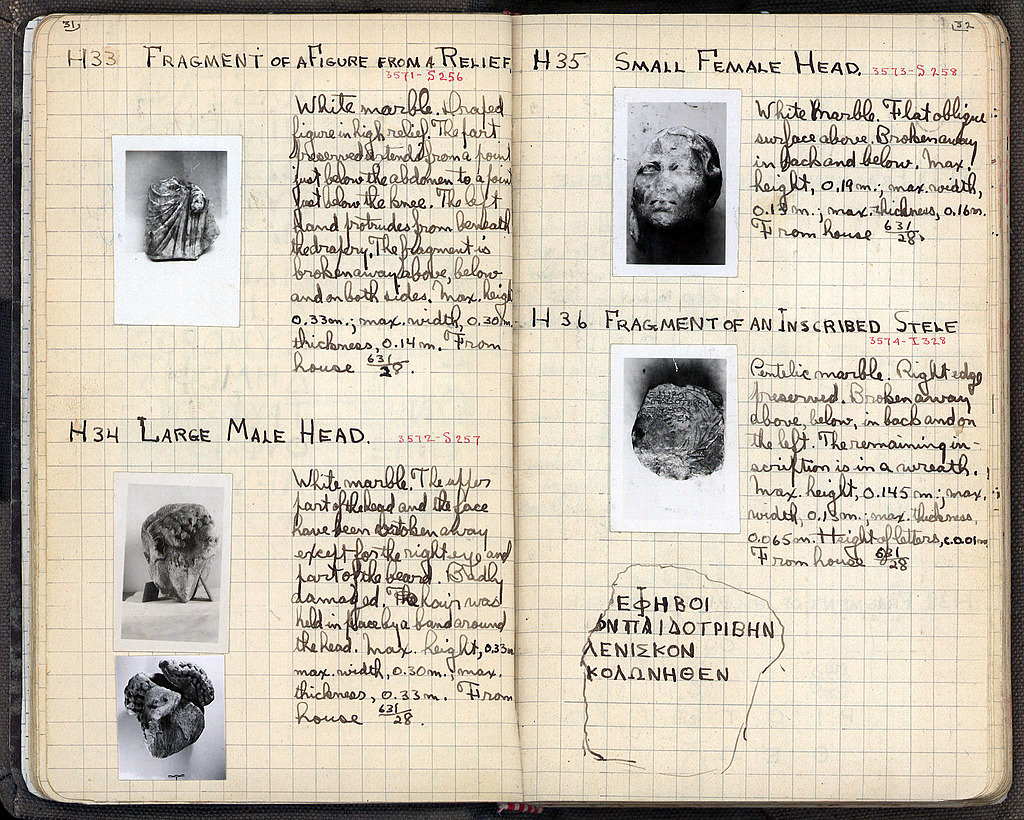 31
H33 FRAGMENT OF A FIGURE FROM A RELIEF.
3571-S256
White marble. Draped
figure in high relief. The part
preserved extends from a point
just below the abdomen to a point
just below the knee. The left
hand protrudes from beneath
the drapery. The fragment is
broken away above, below
and on both sides. Max. heigh
0.33m.; max. width, 0.30m.
thickness, 0.14m. From
house 631/28.
H34 LARGE MALE HEAD.
3572-S257
White marble. The upper
part of the head and the face
have been broken away
except for the right eye and
part of the beard. Badly
damaged. The hair was
held in place by a band around
the head. Max. height, 0.33m
max. width, 0.30m.; max.
thickness, 0.33m. From
house 631/28.
32
H35 SMALL FEMALE HEAD.
3573-S258
White marble. Flat oblique
surface above. Broken away
in back and below. Max.
height, 0.19m.; max. width,
max. thickness, 0.16m.
From house 631/28.
H36 FRAGMENT OF AN INSCRIBED STELE
3574-I328
Pentelic marble. Right edge
preserved. Broken away
above, below, in back and on
the left. The remaining in-
scription is in a wreath.
Max. height, 0.145m.; max.
width, 0.13m.; max. thickness,
0.065m. Height of letters, c.0.01m
From house 631/28
ΕΦΗΒΟΙ
ΟΝΠΑΙΔΟΤΡΙΒΗΝ
ΛΕΝΙΣΚΟΝ
ΚΟΛΩΝΗΘΕΝ